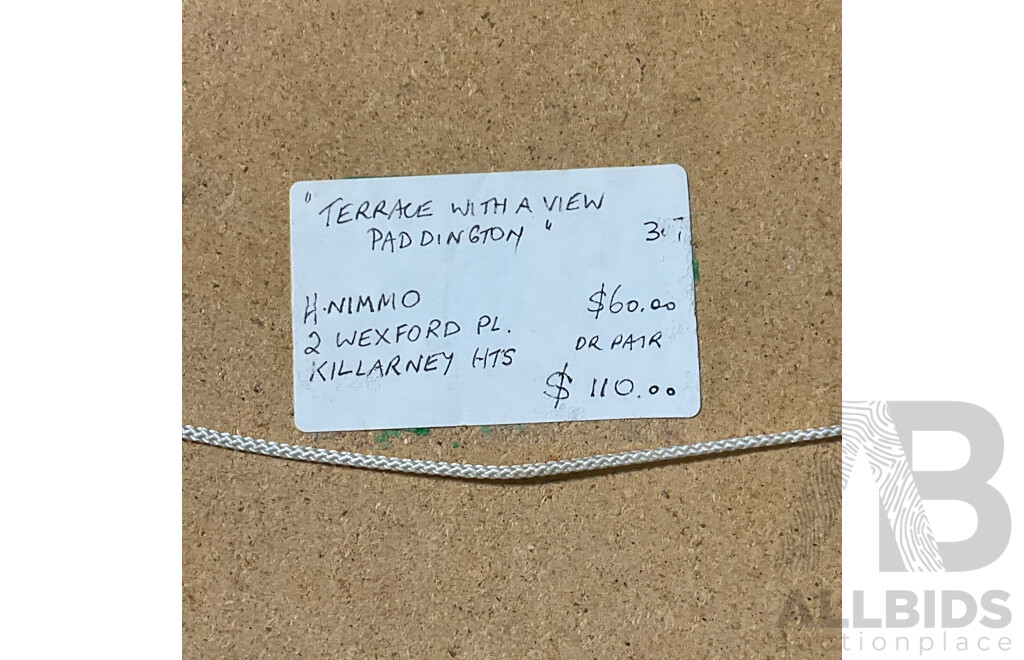 "TERRACE WITH A VIEW
PADDINGTON"
H. NIMMO
2 WEXFORD PL.
KILLARNEY HTS
$60.00
OR PAIR
$110.00
AB
ALLBIDS
auctionplace